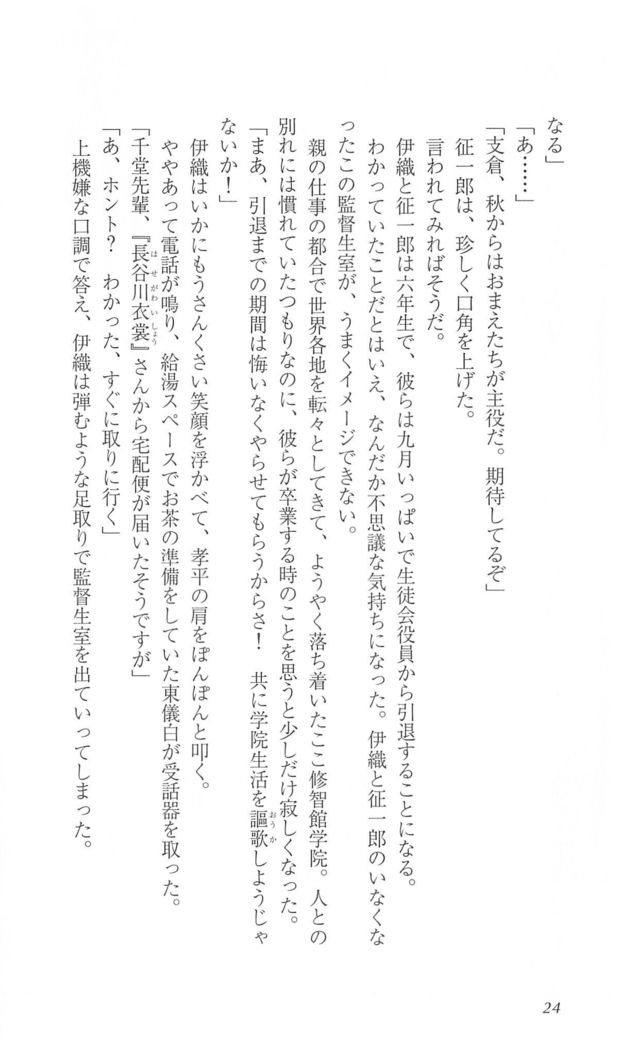 なる」
「あ……」
「支倉、秋からはおまえたちが主役だ。期待してるぞ」
征一郎は、珍しく口角を上げた。
言われてみればそうだ。
伊織と征一郎は六年生で、彼らは九月いっぱいで生徒会役員から引退することになる。
わかっていたことだとはいえ、なんだか不思議な気持ちになった。伊織と征一郎のいなくな
ったこの監督生室が、うまくイメージできない。
親の仕事の都合で世界各地を転々としてきて、ようやく落ち着いたここ修智館学院。人との
別れには慣れていたつもりなのに、彼らが卒業する時のことを思うと少しだけ寂しくなった。
「まあ、引退までの期間は悔いなくやらせてもらうからさ！　共に学院生活を謳歌しようじゃ
おうか
ないか！」
伊織はいかにもうさんくさい笑顔を浮かべて、孝平の肩をぽんぽんと叩く。
ややあって電話が鳴り、給湯スペースでお茶の準備をしていた東儀白が受話器を取った。
「千堂先輩、『長谷川衣裳』さんから宅配便が届いたそうですが」
はせがわいしょう
「あ、ホント？　わかった、すぐに取りに行く」
上機嫌な口調で答え、伊織は弾むような足取りで監督生室を出ていってしまった。
24